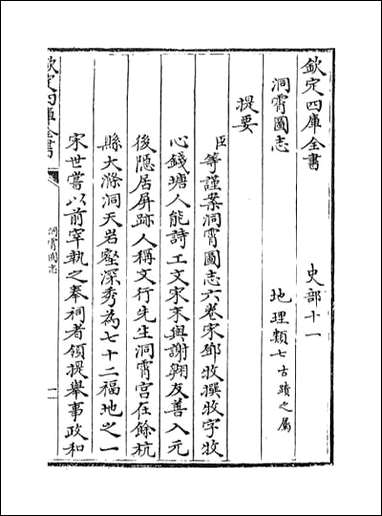 欽定四庫全書
史部十一
洞霄圖志
地理類七古蹟之屬
提要
臣等謹案洞霄圖志六卷宋鄧牧撰牧字牧
心錢塘人能詩工文宋末與謝翱友善入元
後隱居屏跡人稱文行先生洞霄宮在餘杭
縣大滌洞天岩壑深秀為七十二福地之一
宋世嘗以前宰執之奉祠者領提舉事政和
欽定四庫全書
洞霄圖志
一